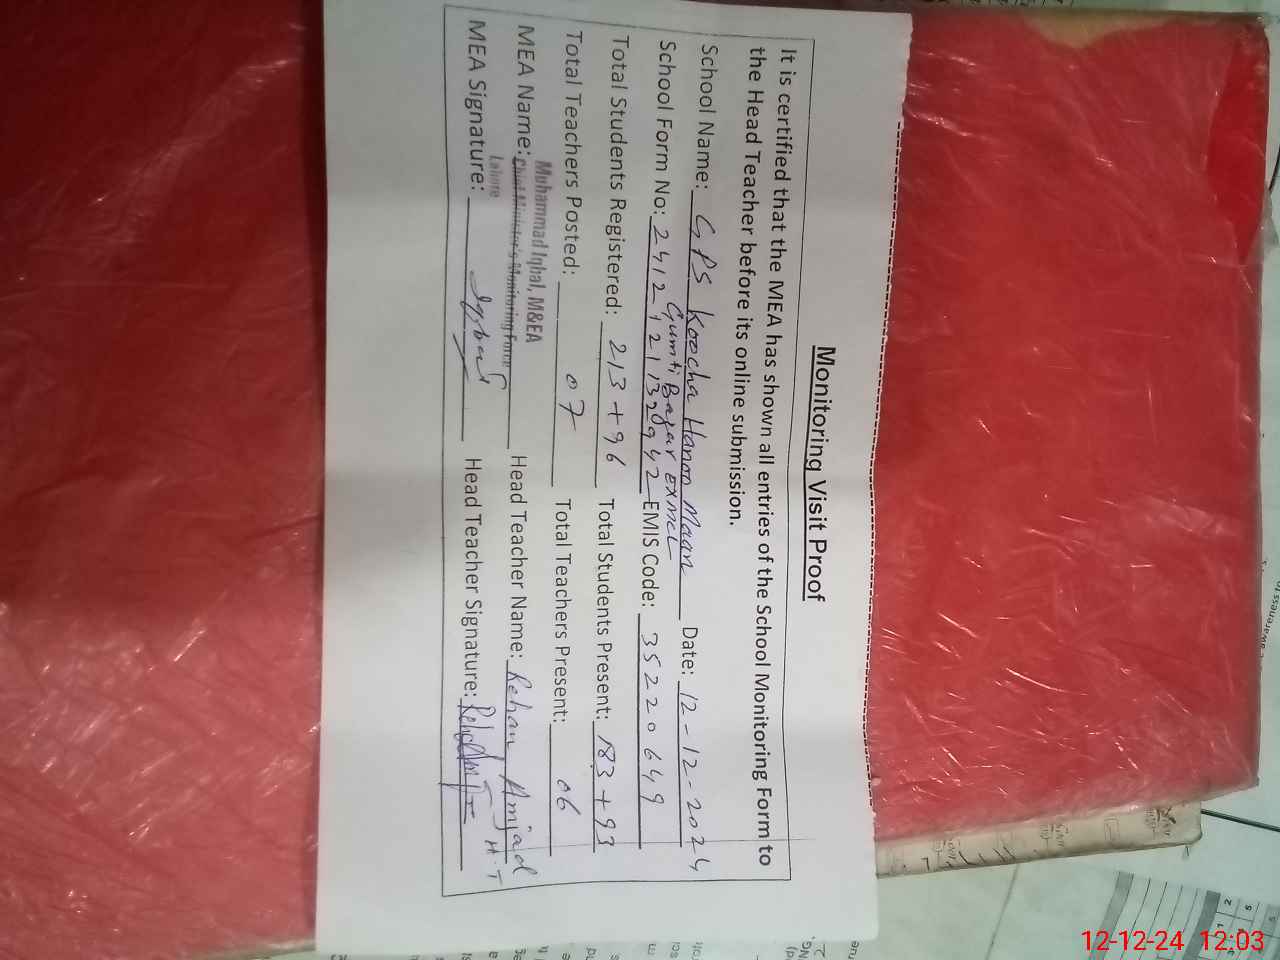 Monitoring Visit Proof
It is certified that the MEA has shown all entries of the School Monitoring Form to
the Head Teacher before its online submission.
School Name: GPS Koocha Hanoo Maan Date: 12-12-2024
Gumti Bazar EXMCL
School Form No: 24121211329942 EMIS Code: 35220649
Total Students Registered: 213+96 Total Students Present: 183+93
Total Teachers Posted: 07 Total Teachers Present: 06
Muhammad Iqbal, M&EA
MEA Name: Chief Minister's Monitoring Force Head Teacher Name: Rehan Amjad
Lahore
H.T
MEA Signature: Iqbal Head Teacher Signature:
12-12-24 12:03